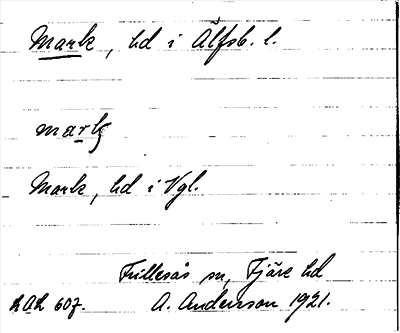 Mark, hd i Älfsb. l.
mark
Mark, hd i Vgl.
Frillesås sn, Fjäre hd
A. Andersson 1921.
607.